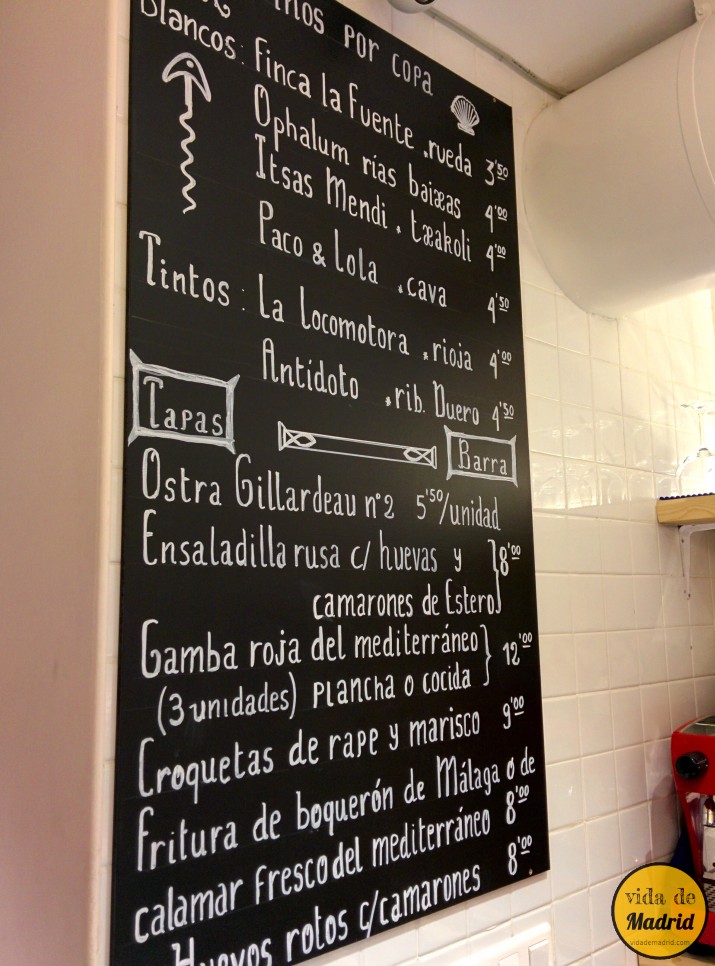 por copa
Blancos: Finca la Fuente .rueda 3'50
Ophalum rías baixas 4'00
Itsas Mendi . txakoli 4'00
Paco & Lola .cava 4'50
Tintos: La Locomotora .rioja 4'00
Antídoto .rib. Duero 4'50
Tapas Barra
Ostra Gillardeau nº2 5'50/unidad
Ensaladilla rusa c/ huevas y
camarones de Estero } 8'00
Gamba roja del mediterráneo
(3 unidades) plancha o cocida } 12'00
Croquetas de rape y marisco 9'00
Fritura de boquerón de Málaga o de
calamar fresco del mediterráneo 8'00
Huevos rotos c/camarones 8'00
vida de
Madrid
vidademadrid.com